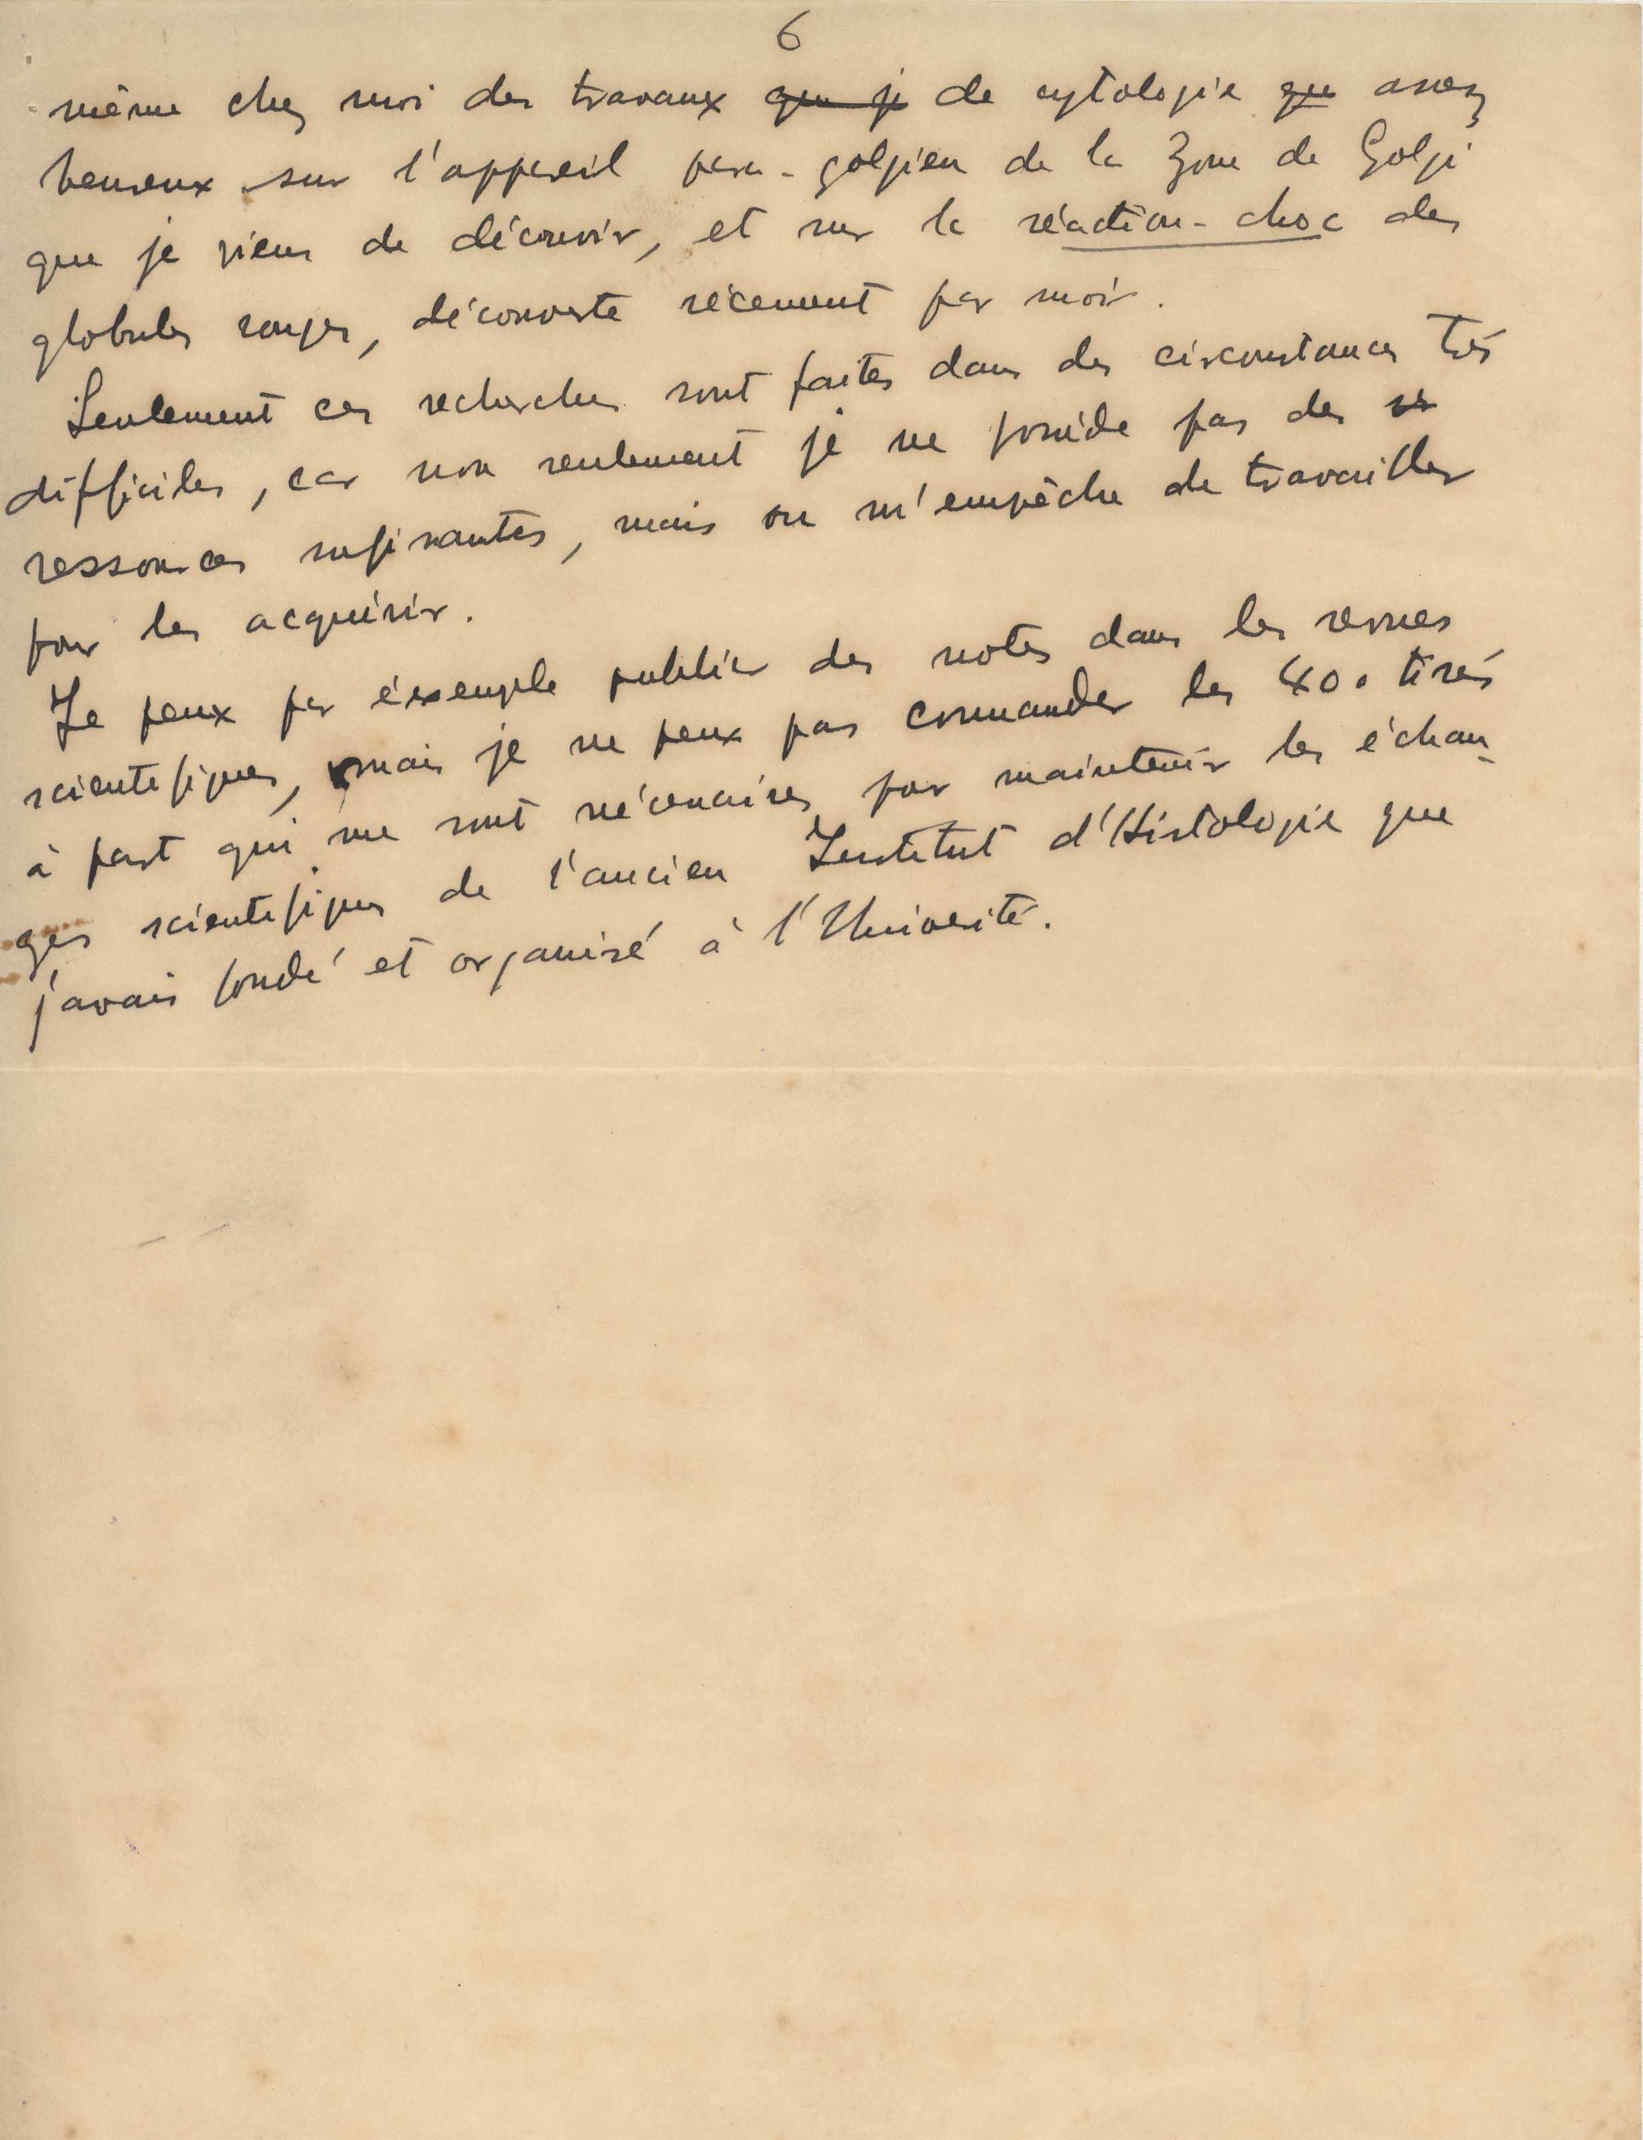 6
même chez moi des travaux que je de cytologie que assez
heureux sur l'appareil para-golgien de la Zone de Golgi
que je viens de découvrir, et sur la réaction-choc des
globules rouges, découverte récement par moi.
Seulement ces recherches sont faites dans des circonstances très
difficiles, car non seulement je ne posséde pas des
ressources sufisantes, mais on m'empêche de travailler
pour les acquérir.
Je peux par éxemple publier des notes dans les revues
scientifiques, mais je ne peux pas commander les 400 tirés
à part qui me sont nécenaires pour maintenir les échan-
ges scientifiques de l'ancien Institut d'Histologie que
j'avais fondé et organisé à l'Université.